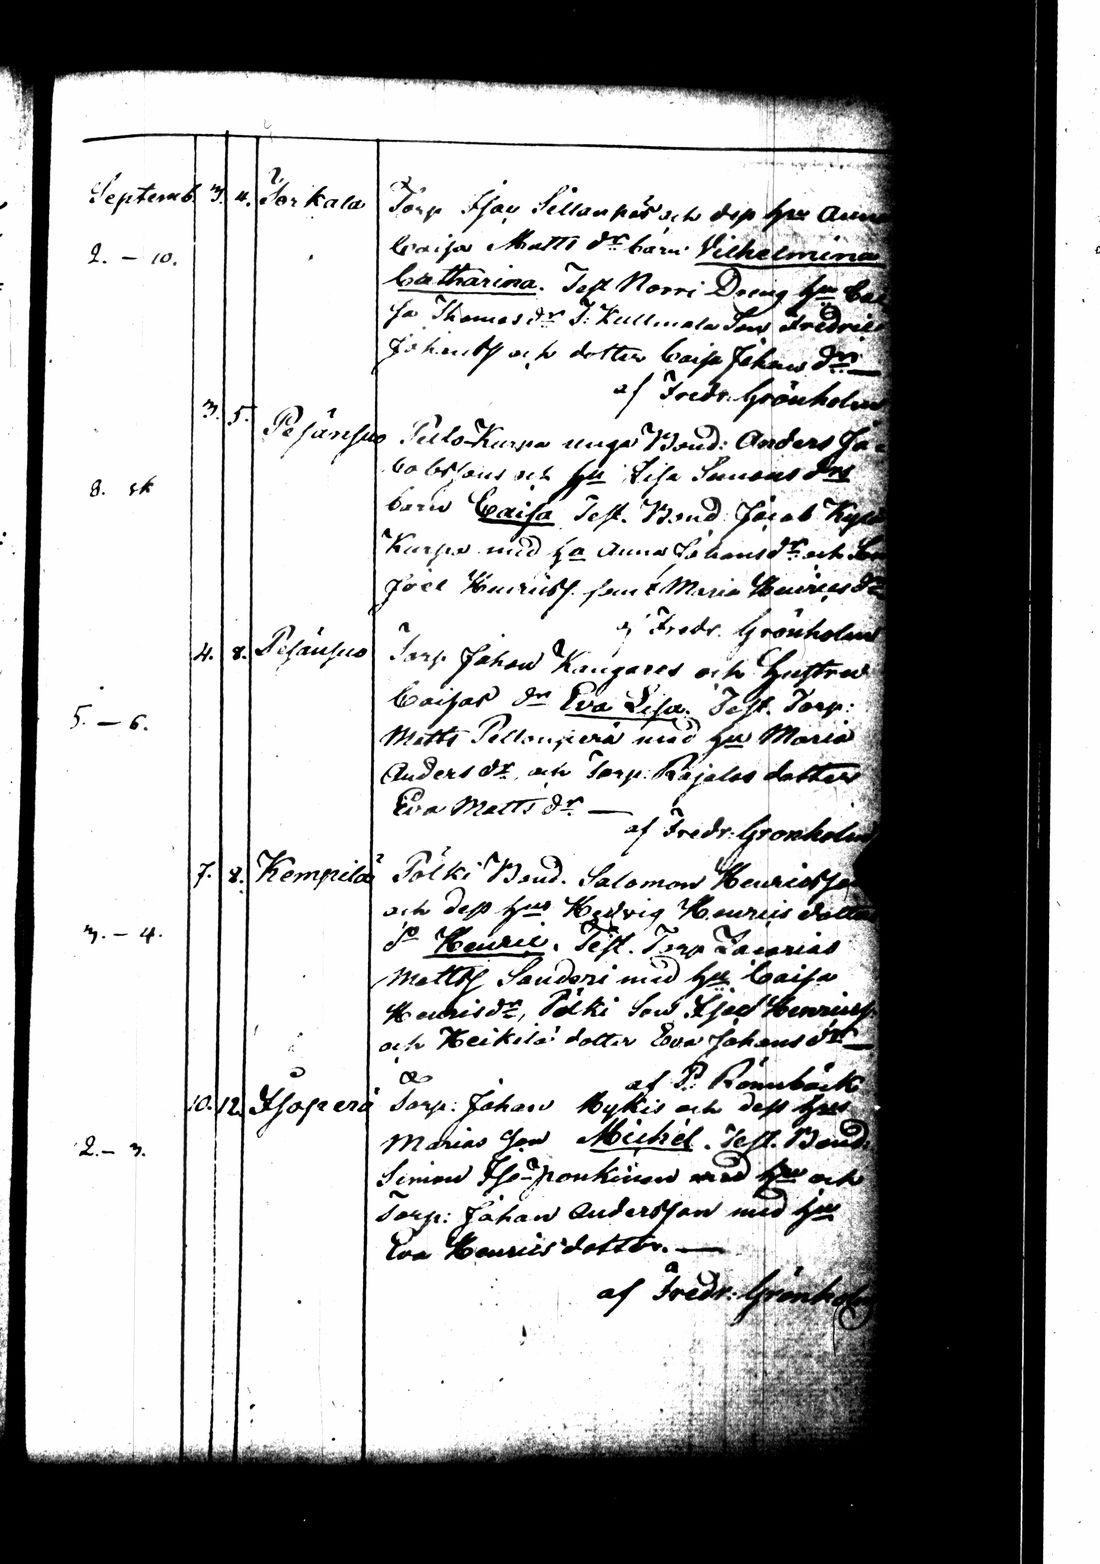 Septemb. 3. 4. Torkala Torp Isac Sillanpää och dess hu Anna
2. – 10. Caisa Matts dr barn Vilhelmina
Catharina. Test Norri Dreng hu Cai
sa Thomas dr T. Kullmala Son Fredric
Johans och dotter Caisa Johans dr —
af Fredr. Grönholm
3. 5. Pesänsuo Kurpa unga Bond: Anders Ja
cobssons och hu Lisa Simons drs
8. barn Caisa Test. Bond Jacob
Kurpa med hu Anna Johans dr och Son
Joel Henricss. samt Maria Henrics dr
af Fredr. Grönholm
4. 8. Pesänsuo Torp Johan Kangares och Hustru
Caisas dr Eva Lisa. Test. Torp:
5. – 6. Matts Pellonperä med hu Maria
Anders dr och Torp: Rajalas dotter
Eva Matts dr —
af Fredr. Grönholm
7. 8. Kempilä Pölki Bond. Salomon Henricsson
och dess hus Hedvig Henrics dotter
3. – 4. So Henric. Test. Torp Zacarias
Mattss Sanderi med hu Caisa
Henrics dr, Pölki Son Isac Henricss.
och Heikilä dotter Eva Johans dr —
af P. Rönnbäck
10. 12. Isoperä Torp: Johan Mykis och dess hus
2. – 3. Marias Son Michel. Test. Bond:
Simon Iso-Ponkinen med hu och
Torp: Johan Andersson med hu
Eva Henrics dotter. —
af Fredr. Grönholm